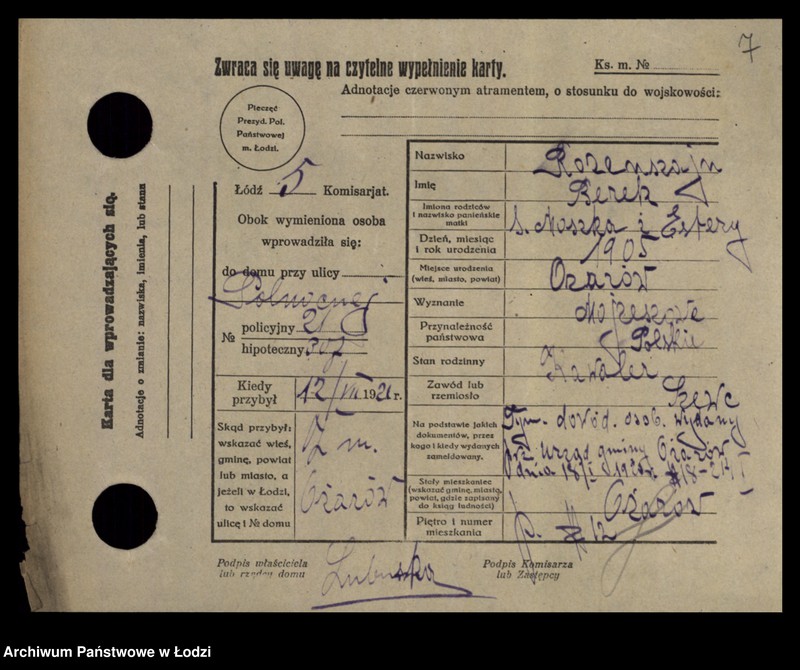 7
Zwraca się uwagę na czytelne wypełnienie karty.
Ks. m. №
Adnotacje czerwonym atramentem, o stosunku do wojskowości:
Pieczęć
Prezyd. Pol.
Państwowej
m. Łodzi.
Karta dla wprowadzających się.
Adnotacje o zmianie: nazwiska, imienia, lub stanu
Łódź 5 Komisarjat.
Obok wymieniona osoba
wprowadziła się:
do domu przy ulicy
Północnej
№
policyjny 21
hipoteczny
Kiedy
przybył
12/VII 1921 r.
Skąd przybył:
wskazać wieś,
gminę, powiat
lub miasto, a
jeżeli w Łodzi,
to wskazać
ulicę i № domu
Z m.
Ożarów
Nazwisko
Rozenszajn
Imię
Berek
Imiona rodziców
i nazwisko panieńskie
matki
s. Moszka i Estery
Dzień, miesiąc
i rok urodzenia
1905
Miejsce urodzenia
(wieś, miasto, powiat)
Ożarów
Wyznanie
Mojżeszowe
Przynależność
państwowa
Polskie
Stan rodzinny
Kawaler
Zawód lub
rzemiosło
Szewc
Na podstawie jakich
dokumentów, przez
kogo i kiedy wydanych
zameldowany.
Tym. dowód. osob. wydany
prz. Urząd gminy Ożarów
dnia 18/I
Stały mieszkaniec
(wskazać gminę, miasto,
powiat, gdzie zapisany
do ksiąg ludności)
Ożarów
Piętro i numer
mieszkania
p. № 12
Podpis właściciela
lub rządcy domu
Podpis Komisarza
lub Zastępcy
Archiwum Państwowe w Łodzi